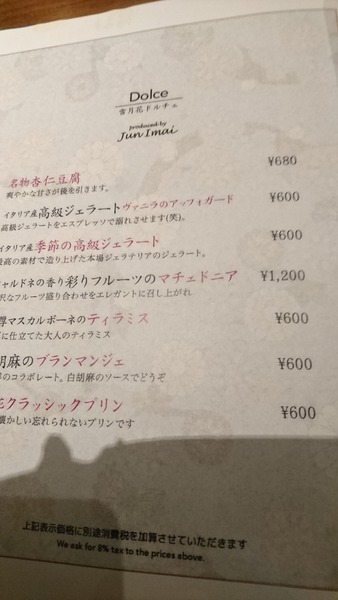 Dolce
雪月花ドルチェ
produced by
Jun Imai
名物杏仁豆腐 ¥680
爽やかな甘さが後を引きます。
イタリア産高級ジェラートヴァニラのアッフォガード ¥600
高級ジェラートをエスプレッソで溺れさせます(笑)。
イタリア産季節の高級ジェラート ¥600
最高の素材で造り上げた本場ジェラテリアのジェラート。
シャルドネの香り彩りフルーツのマチェドニア ¥1,200
沢なフルーツ盛り合わせをエレガントに召し上がれ
厚マスカルポーネのティラミス ¥600
に仕立てた大人のティラミス
胡麻のブランマンジェ ¥600
のコラボレート。白胡麻のソースでどうぞ
クラッシックプリン ¥600
懐かしい忘れられないプリンです
上記表示価格に別途消費税を加算させていただきます
We ask for 8% tax to the prices above.